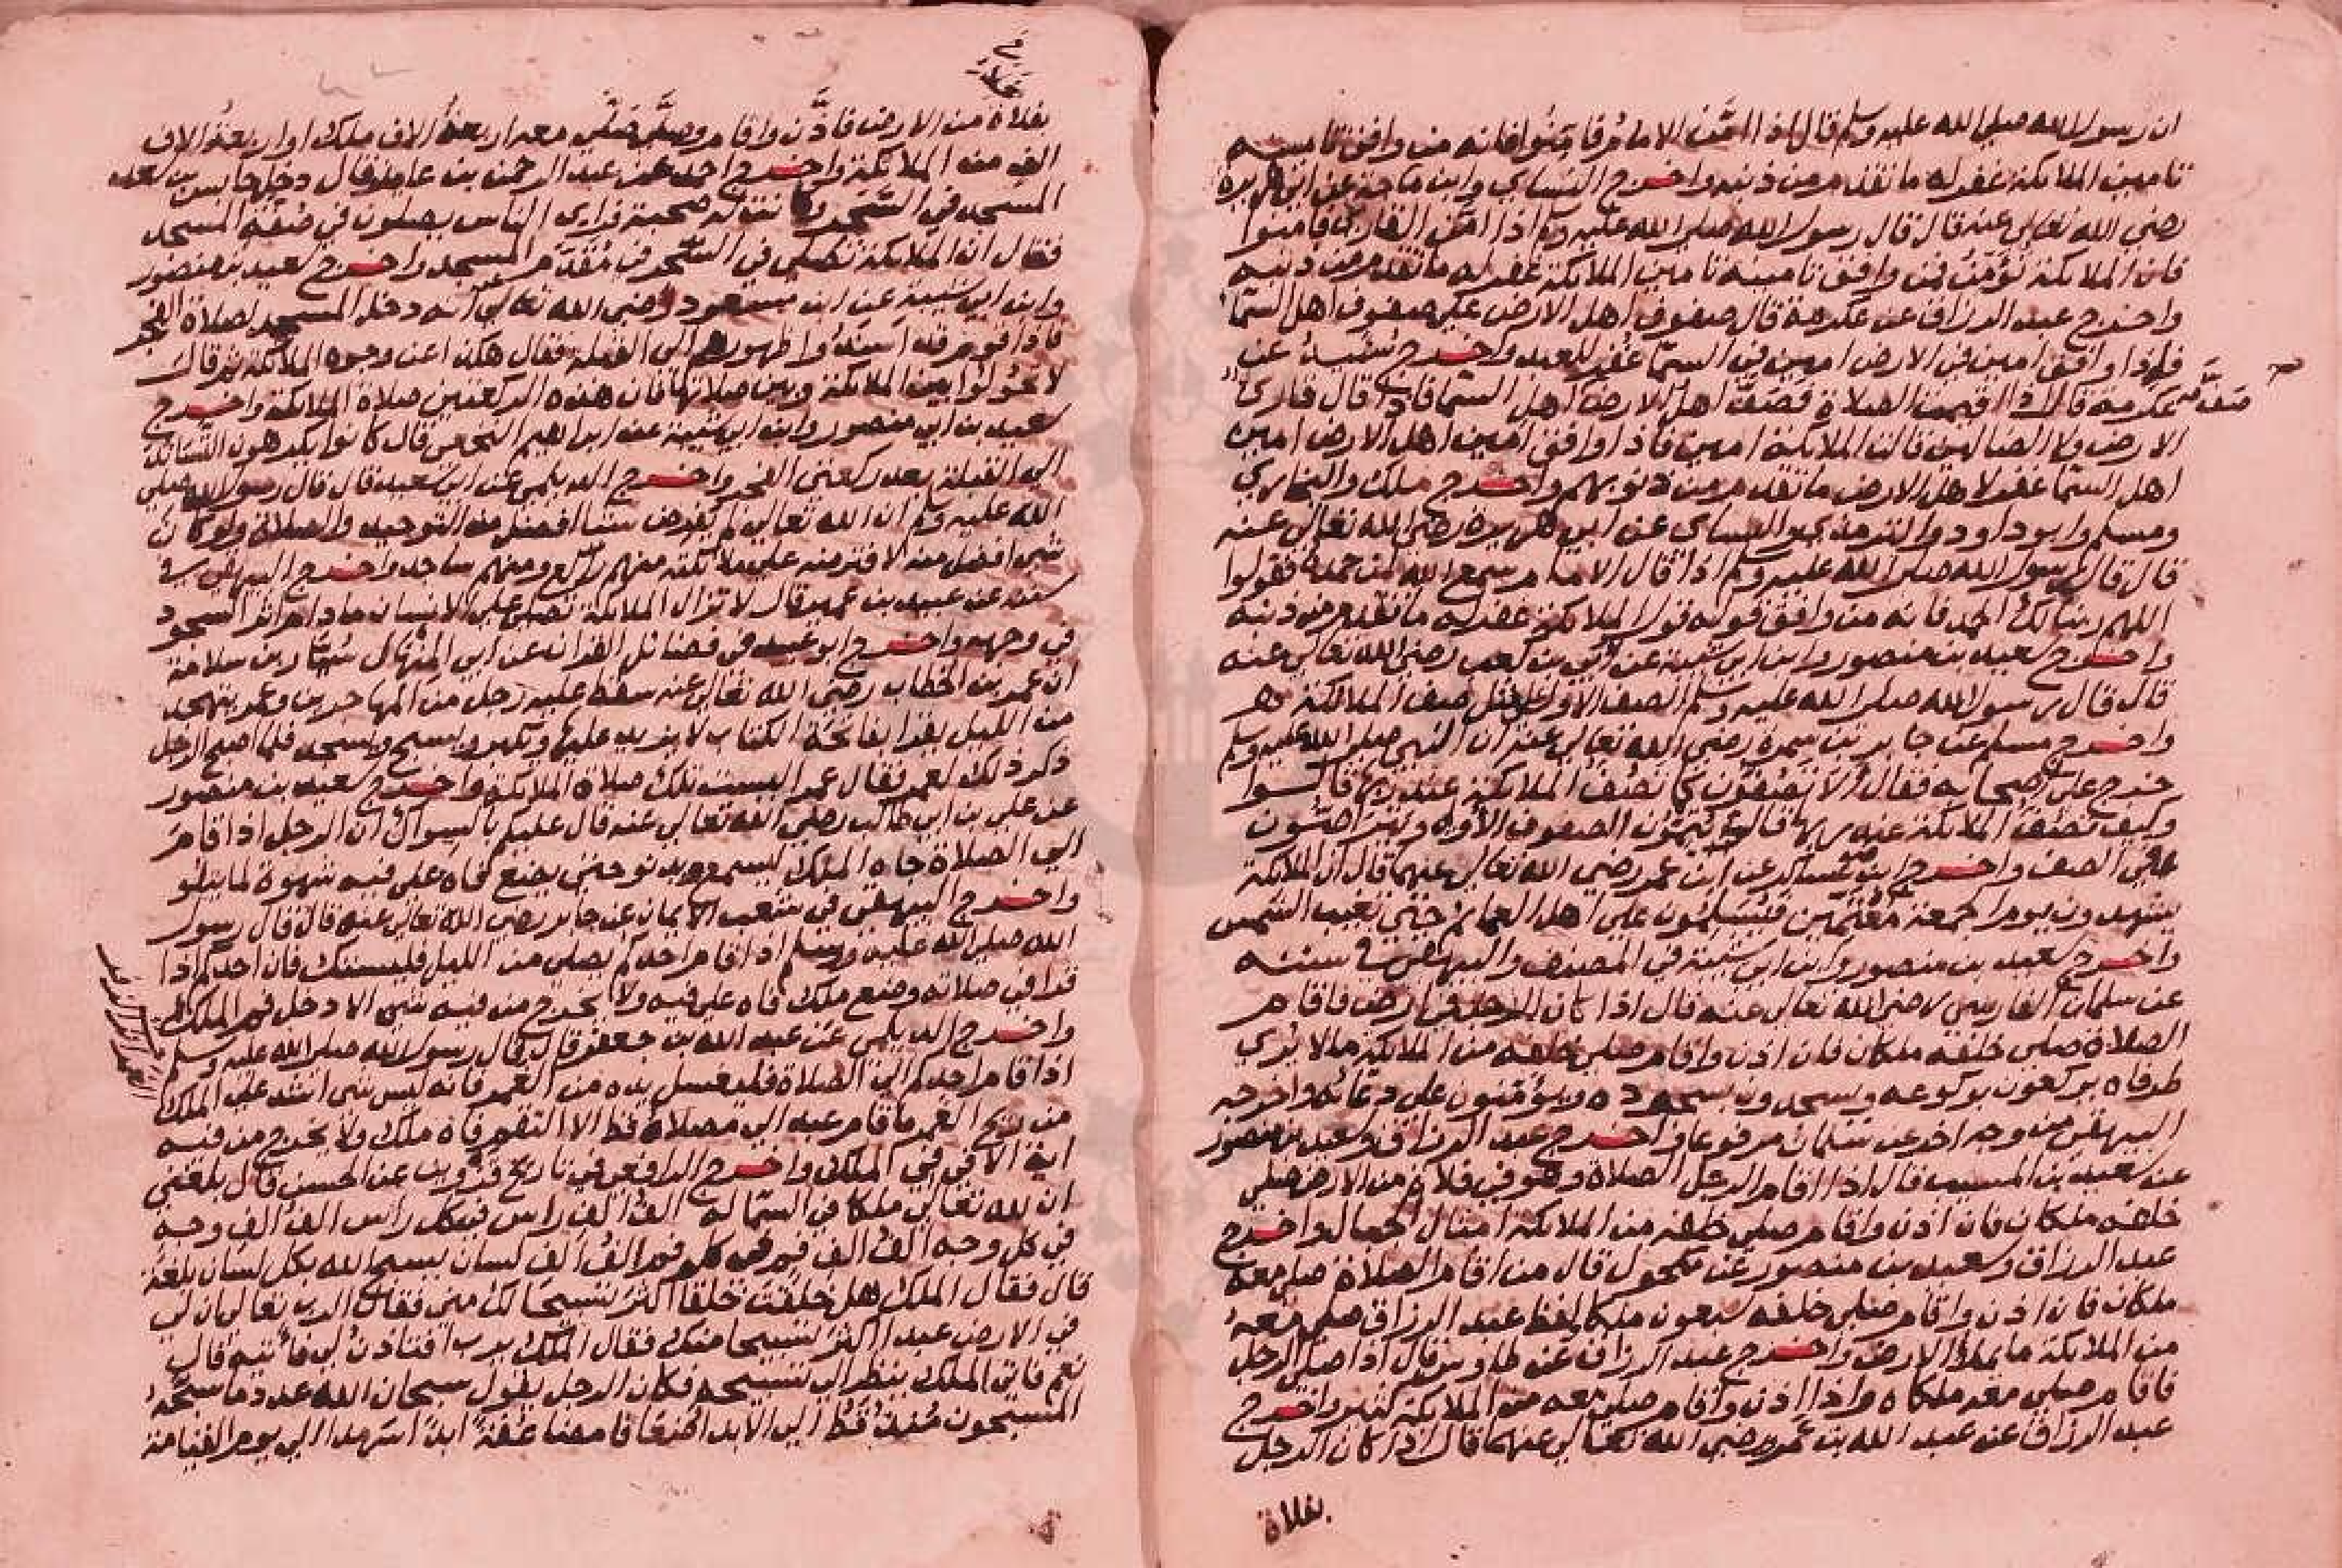 ان رسول الله صلى الله عليه وسلم قال اذا امّن الامامُ فامّنوا فانه من وافق تامينه
تامين الملائكة غفر له ما تقدم من ذنبه واخرج النساي وابن ماجة عن ابي هريرة
رضي الله تعالى عنه قال قال رسول الله صلى الله عليه وسلم اذا امّن القارئ فامنوا
فان الملائكة تؤمّن فمن وافق تامينه تامين الملائكة غفر له ما تقدم من ذنبه
واخرج عبد الرزاق عن عكرمة قال صفوف اهل الارض على صفوف اهل السما
فاذا وافق امين في الارض امين في السما غفر للعبد واخرج سُنيد عن
عكرمة قال اذا اقيمت الصلاة فصَفَّ اهل الارض صَفَّ اهل السما فاذا قال قارئ
الارض ولا الضالين قالت الملائكة امين فاذا وافق امين اهل الارض امين
اهل السما غفر لاهل الارض ما تقدم من ذنوبهم واخرج ملك والبخاري
ومسلم وابو داود والترمذي والنساي عن ابي هريرة رضي الله تعالى عنه
قال قال رسول الله صلى الله عليه وسلم اذا قال الامام سمع الله لمن حمده فقولوا
اللهم ربنا لك الحمد فانه من وافق قوله قول الملائكة غفر له ما تقدم من ذنبه
واخرج سعيد بن منصور وابن ابي شيبة عن ابي بن كعب رضي الله تعالى عنه
قال قال رسول الله صلى الله عليه وسلم الصف الاول على مثل صف الملائكة
واخرج مسلم عن جابر بن سمرة رضي الله تعالى عنه ان النبي صلى الله عليه وسلم
خرج على اصحابه فقال الا تصفّون كما تصُف الملائكة عند ربها قالوا
وكيف تصف الملائكة عند ربها قال يُتِمّون الصفوف الأول ويتراصّون
في الصف واخرج ابن عساكر عن ابن عمر رضي الله تعالى عنهما قال ان الملائكة
يشهدون يوم الجمعة معتمّين فيسلمون على اهل العمائم حتى تغيب الشمس
واخرج سعيد بن منصور وابن ابي شيبة في المصنف والبيهقي في سننه
عن سلمان الفارسي رضي الله تعالى عنه قال اذا كان الرجل في ارض فاقام
الصلاة صلى خلفه ملكان فان اذن واقام صلى خلفه من الملائكة ما لا يُرى
طرفاه يركعون بركوعه ويسجدون بسجوده ويؤمّنون على دعائه واخرجه
البيهقي من وجه اخر عن سلمان مرفوعا واخرج عبد الرزاق وسعيد بن منصور
عن سعيد بن المسيب قال اذا اقام الرجل الصلاة وهو في فلاة من الارض صلى
خلفه ملكان فان اذن واقام صلى خلفه من الملائكة امثال الجبال واخرج
عبد الرزاق وسعيد بن منصور عن مكحول قال من اقام الصلاة صلى معه
ملكان فان اذن واقام صلى خلفه سبعون ملكا لفظ عبد الرزاق صلى معه
من الملائكة ما يملا الارض واخرج عبد الرزاق عن طاوس قال اذا صلى الرجل
فاقام صلى معه ملكاه واذا اذن واقام صلى معه من الملائكة كثير واخرج
عبد الرزاق عن عبد الله بن عمر رضي الله تعالى عنهما قال اذا كان الرجل
بفلاة
بفلاة من الارض فاذّن واقام وصلّى صَلّى معه اربعةُ الاف ملك او اربعةُ الاف
الف من الملائكة واخرج احمد عن عبد الرحمن بن عامر قال دخل حابس بن سعد
المسجد في السَّحَر وكانت له صحبة فراى الناس يصلون في صُفّة المسجد
فقال ان الملائكة تصلي في السّحر في مُقدّم المسجد واخرج سعيد بن منصور
وابن ابي شيبة عن ابن مسعود رضي الله تعالى عنه انه دخل المسجد لصلاة الفجر
فاذا قوم قد اسندُوا ظهورهم الى القبلة فقال هكذا عن وجوه الملائكة ثم قال
لا تحُولوا بين الملائكة وبين صلاتها فان هذه الركعتين صلاة الملائكة واخرج
سعيد بن ابي منصور وابن ابي شيبة عن ابراهيم النخعي قال كانوا يكرهون التساند
الى القبلة بعد ركعتي الفجر واخرج الديلمي عن ابي سعيد قال قال رسول الله صلى
الله عليه وسلم ان الله تعالى لم يفرض شيئا افضل من التوحيد والصلاة ولو كان
شي افضل منه لافترضه على ملائكته منهم راكع ومنهم ساجد واخرج البيهقي في
سننه عن عبيد بن عمير قال لا تزال الملائكة تصلي على الانسان ما دام اثر السجود
في وجهه واخرج ابو عبيد في فضائل القران عن ابي المنهال سيّار بن سلامة
ان عمر بن الخطاب رضي الله تعالى عنه سقط عليه رجل من المهاجرين وعمر يتهجد
من الليل يقرا بفاتحة الكتاب لا يزيد عليها ويكبر ويسبح ويسجد فلما اصبح الرجل
ذكر ذلك لعمر فقال عمر اليست تلك صلاة الملائكة واخرج سعيد بن منصور
عن علي بن ابي طالب رضي الله تعالى عنه قال عليكم بالسواك ان الرجل اذا قام
الى الصلاة جاه الملك يستمع ثم يدنو حتى يضع فاه على فيه شهوة لما يتلو
واخرج البيهقي في شعب الايمان عن جابر رضي الله تعالى عنه قال قال رسول
الله صلى الله عليه وسلم اذا قام احدكم يصلي من الليل فليستك فان احدكم اذا
قرا في صلاته وضع ملك فاه على فيه ولا يخرج من فيه شي الا دخل فم الملك
واخرج الديلمي عن عبد الله بن جعفر قال قال رسول الله صلى الله عليه وسلم
اذا قام احدكم الى الصلاة فليغسل يده من الغمر فانه ليس شي اشد على الملك
من ريح الغمر ما قام عبد الى صلاة قط الا التقم فاه ملك ولا يخرج من فيه
اية الا في في الملك واخرج الرافعي في تاريخ قزوين عن الحسن قال بلغني
ان لله تعالى ملكا في السما له الف الف راس في كل راس الف الف وجه
في كل وجه الف الف فم في كل فم الف الف لسان يسبح الله بكل لسان بلغة
قال فقال الملك هل خلقت خلقا اكثر تسبيحا لك مني فقال الرب تعالى ان لي
في الارض عبدا اكثر تسبيحا منك فقال الملك يا رب افتاذن لي فآتيه قال
نعم فاتى الملك ينظر الى تسبيحه فكان الرجل يقول سبحان الله عدد ما سبّحهُ
المسبحون منذ قط الى الابد اضعافا مضاعفة ابدا سرمدا الى يوم القيامة